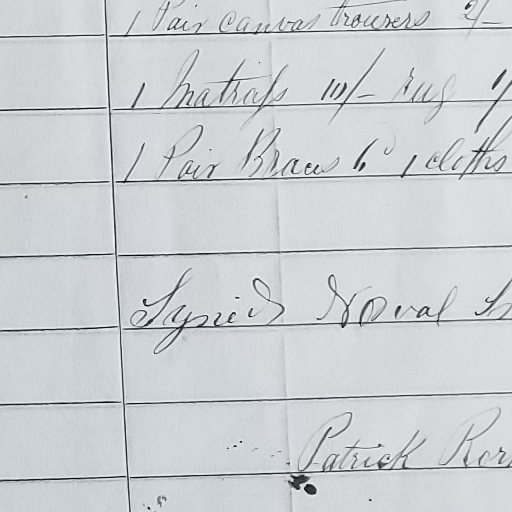 1 Pair canvas trousers 2/-
1 Matrass 10/- rug
1 Pair Braces 6d 1 cloths
Signed Noval
Patrick